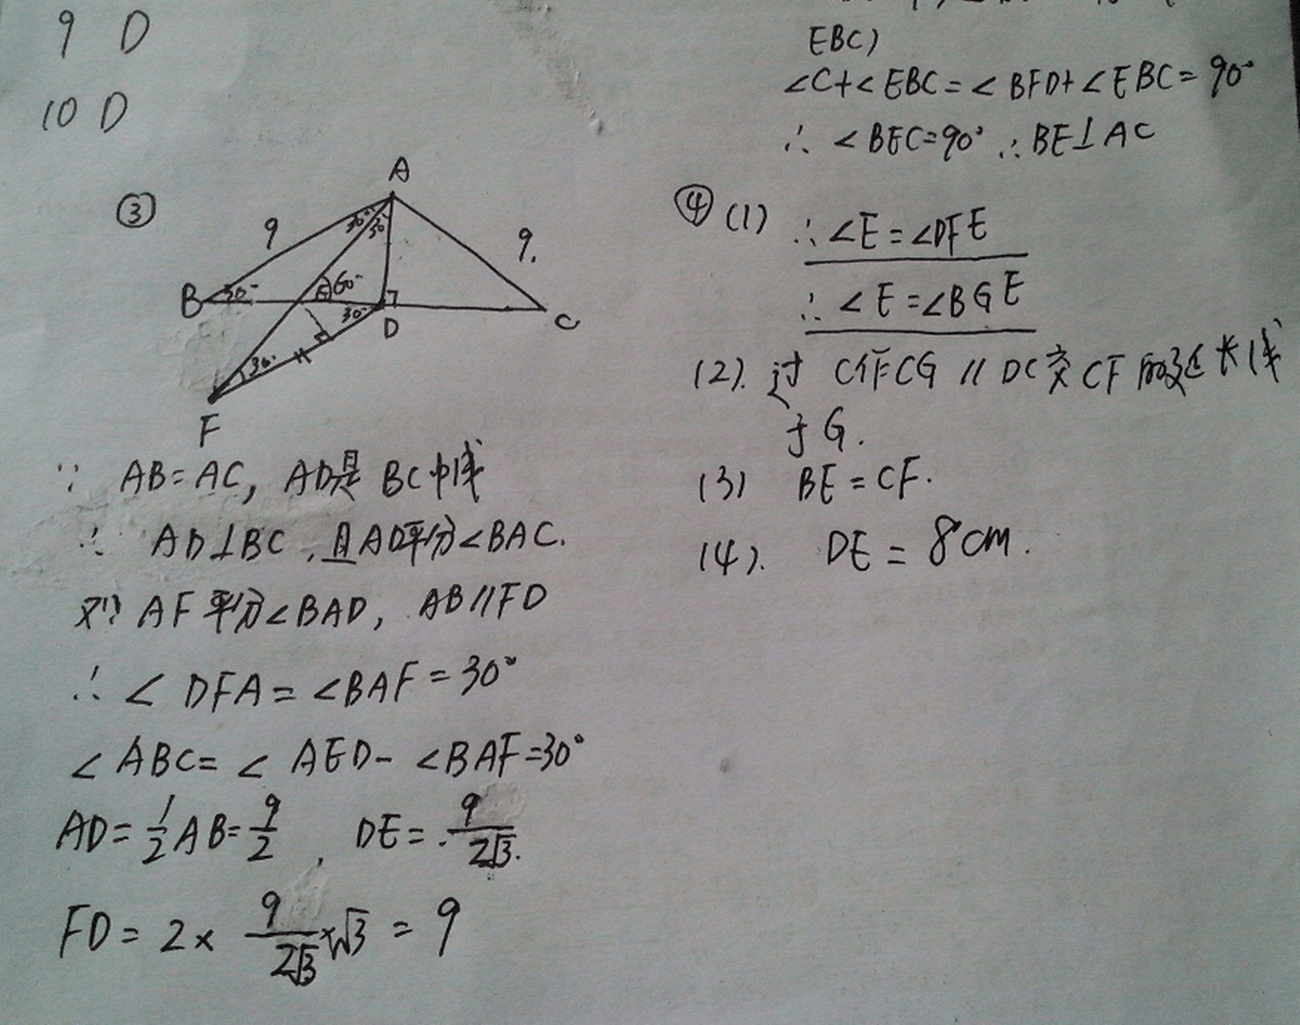 9 D
10 D
③
A
9
9.
30°
30°
B
30°
E
60°
30°
D
C
30°
F
∵ AB=AC, AD是BC中线
∴ AD⊥BC,且AD平分∠BAC.
又∵AF平分∠BAD, AB//FD
∴ ∠DFA=∠BAF=30°
∠ABC=∠AED-∠BAF=30°
AD=1/2AB=9/2, DE=9/2√3.
FD=2×9/2√3×√3=9
EBC)
∠C+∠EBC=∠BFD+∠EBC=90°
∴ ∠BEC=90° ∴BE⊥AC
④(1) ∴∠E=∠DFE
∴ ∠E=∠BGE
(2). 过C作CG//DC交CF的延长线
于G.
(3) BE=CF.
(4). DE=8cm.